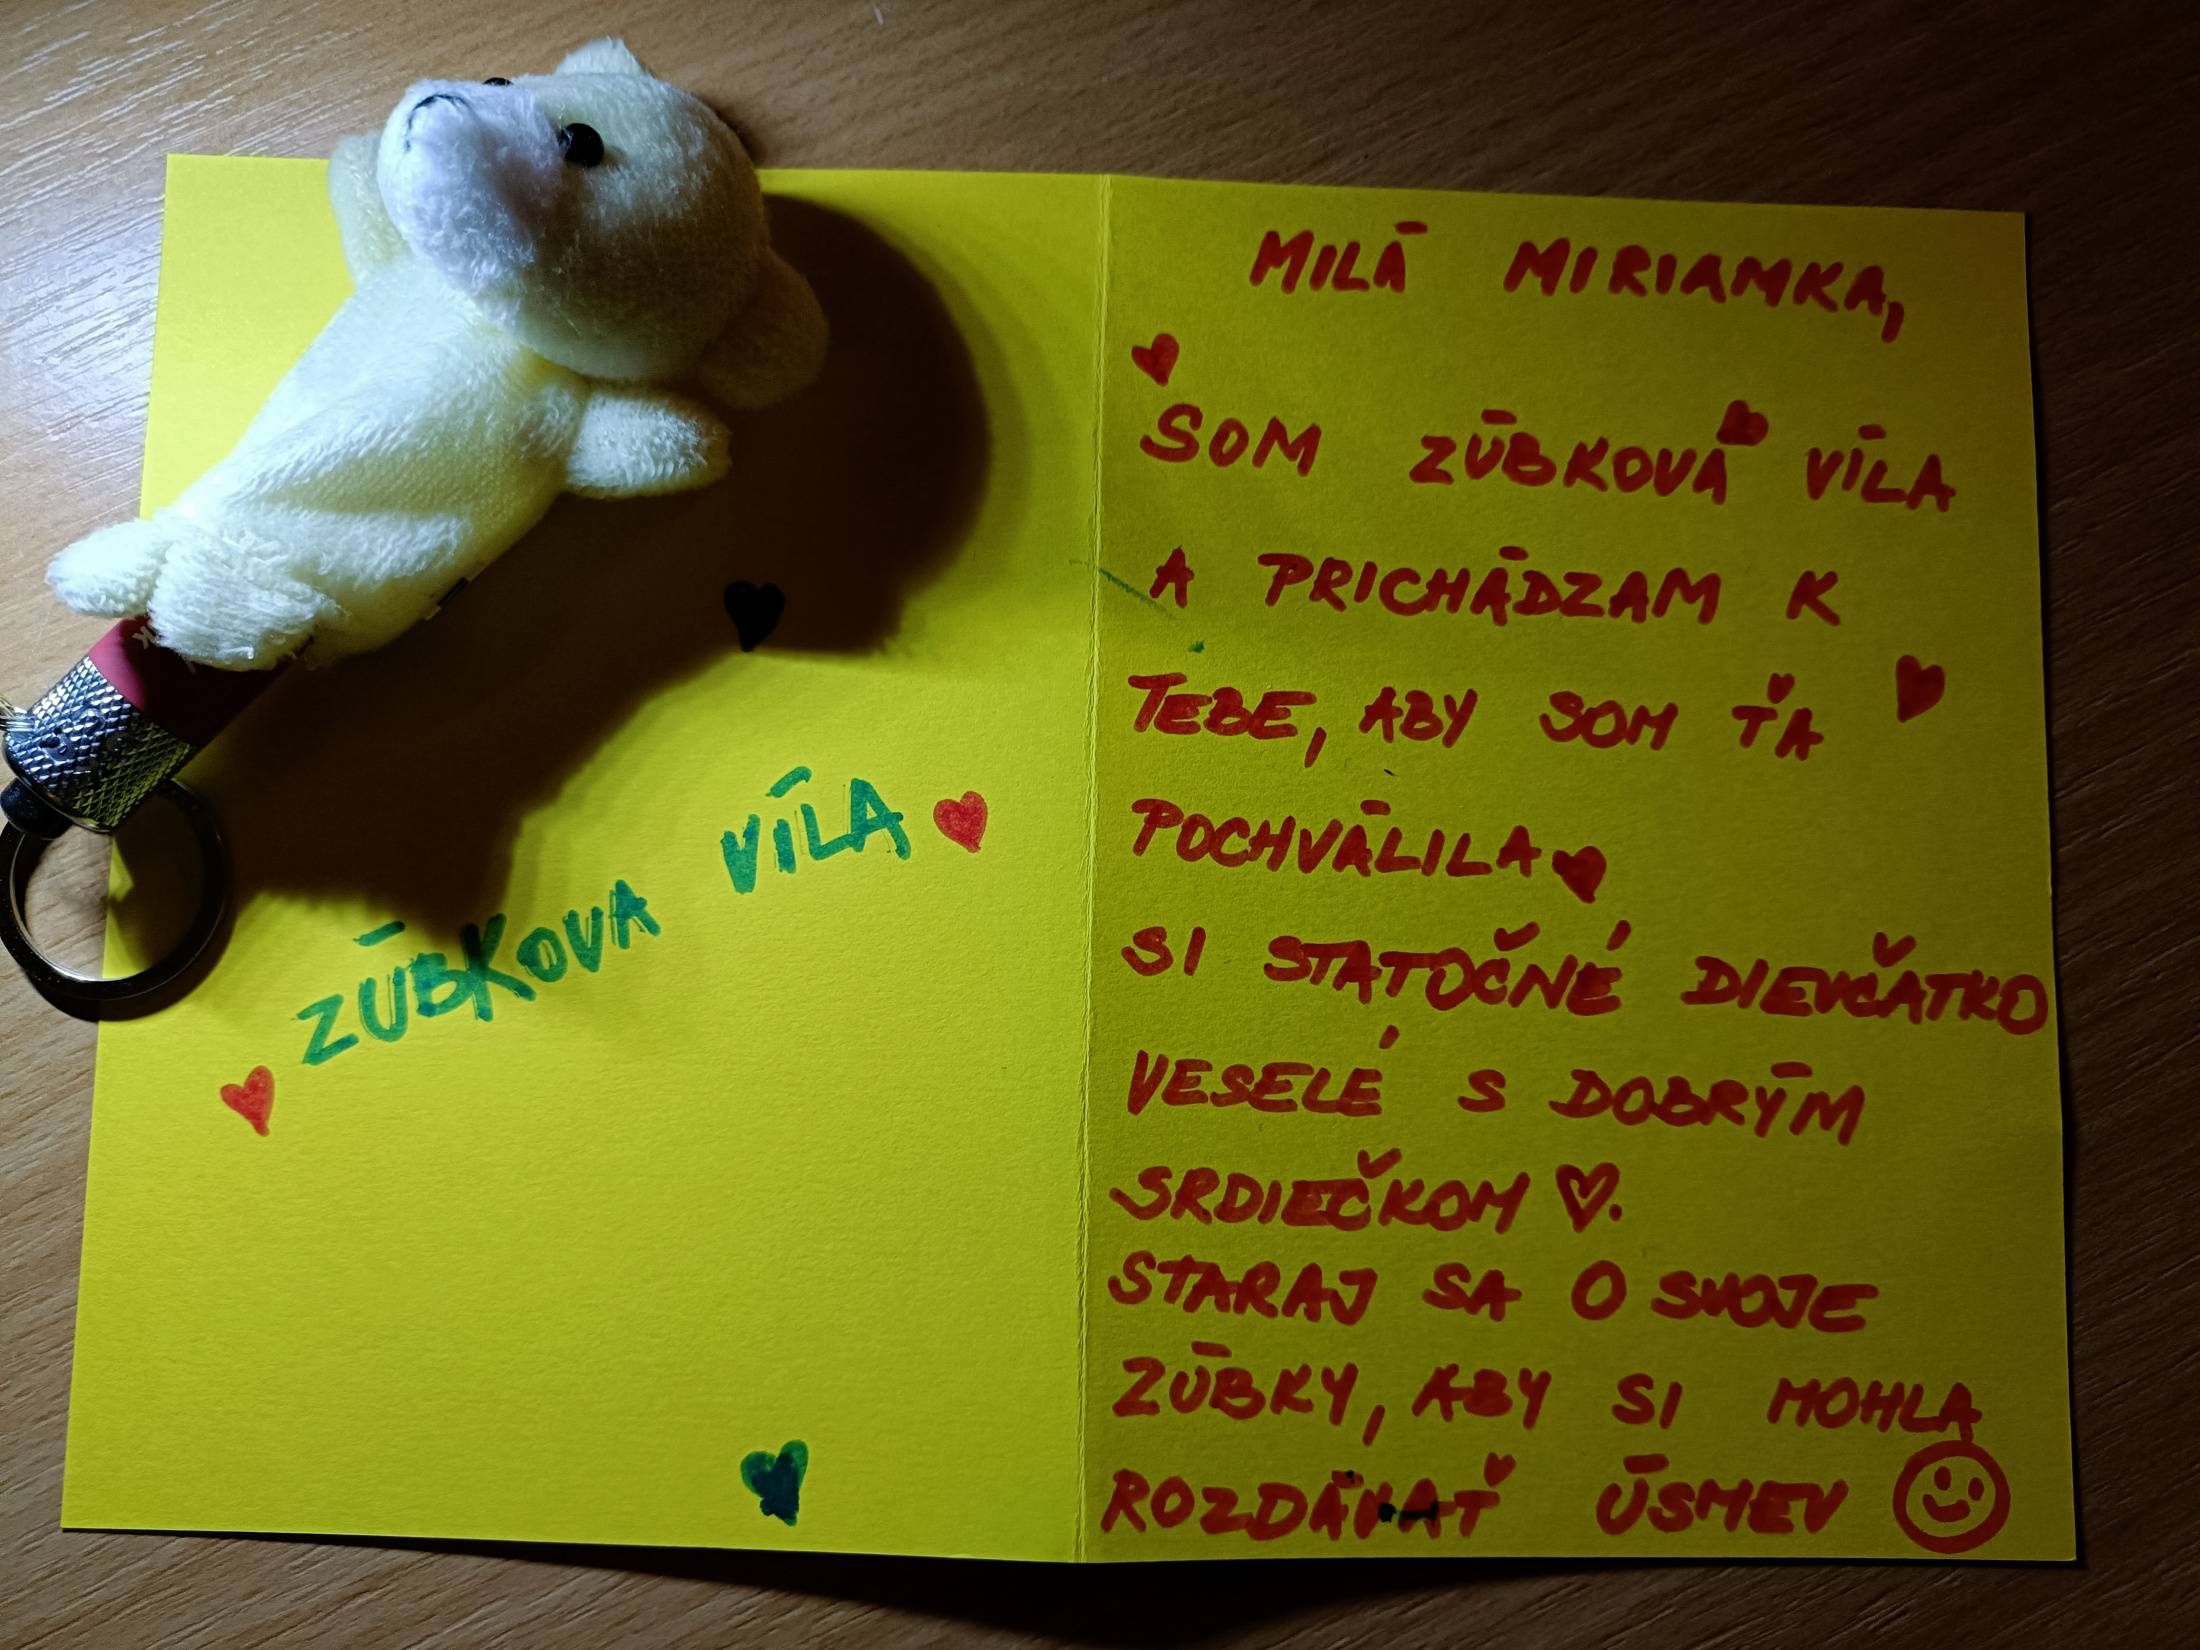 ZÚBKOVA VÍLA
MILÁ MIRIAMKA,
SOM ZÚBKOVÁ VÍLA
A PRICHÁDZAM K
TEBE, ABY SOM ŤA
POCHVÁLILA
SI STATOČNÉ DIEVČATKO
VESELÉ S DOBRÝM
SRDIEČKOM ♡.
STARAJ SA O SVOJE
ZÚBKY, ABY SI MOHLA
ROZDÁVAŤ ÚSMEV